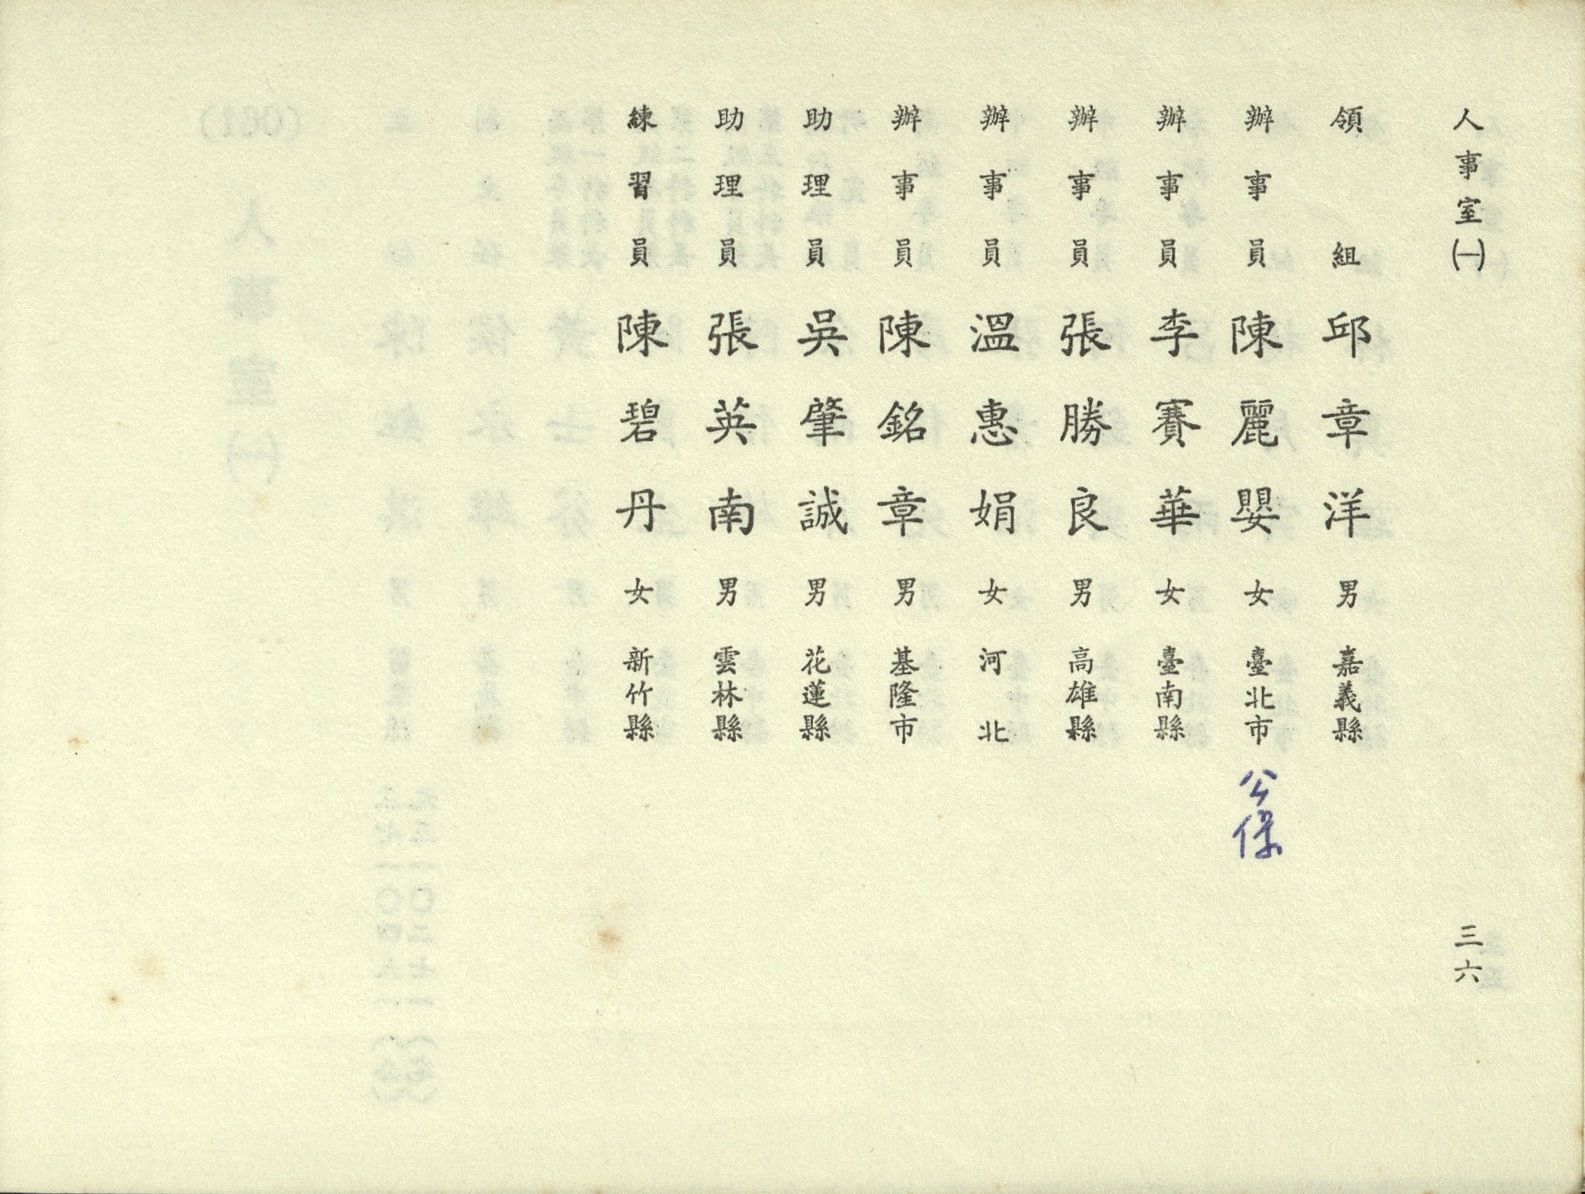 人事室㈠
領組 邱章洋 男 嘉義縣
辦事員 陳麗嬰 女 臺北市 公保
辦事員 李賽華 女 臺南縣
辦事員 張勝良 男 高雄縣
辦事員 溫惠娟 女 河北
辦事員 陳銘章 男 基隆市
助理員 吳肇誠 男 花蓮縣
助理員 張英南 男 雲林縣
練習員 陳碧丹 女 新竹縣
三六